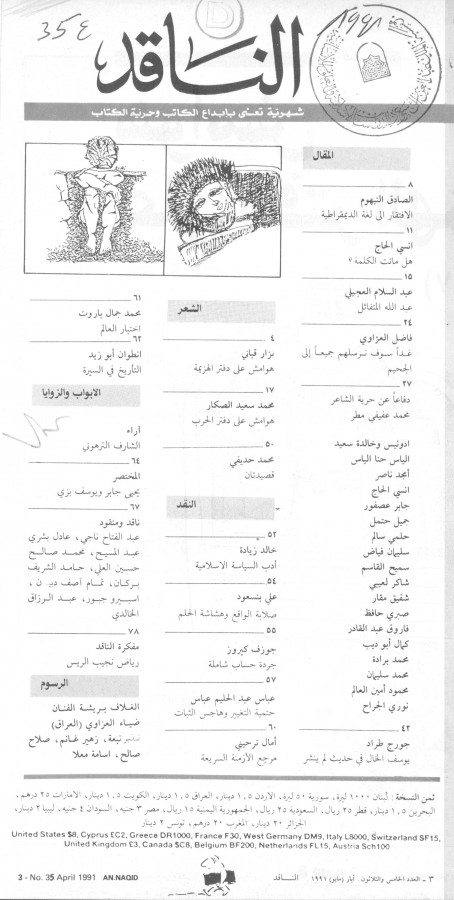 ٣٥٤
١٩٩١
الناقد
شهرية تعنى بإبداع الكاتب وحرية الكتاب
المقال
٨
الصادق النيهوم
الافتقار الى لغة الديمقراطية
١١
انسي الحاج
هل ماتت الكلمة؟
١٥
عبد السلام العجيلي
عبد الله المتفائل
٢٤
فاضل العزاوي
غداً سوف نرسلهم جميعاً إلى
الجحيم
٢٧
دفاعاً عن حرية الشاعر
محمد عفيفي مطر
ادونيس وخالدة سعيد
الياس حنا الياس
أمجد ناصر
انسي الحاج
جابر عصفور
جميل حتمل
حلمي سالم
سليمان فياض
سميح القاسم
شاكر لعيبي
شفيق مقار
صبري حافظ
فاروق عبد القادر
كمال أبو ديب
محمد برادة
محمد سليمان
محمود أمين العالم
نوري الجراح
٤٢
جورج طراد
يوسف الخال في حديث لم ينشر
الشعر
٤
نزار قباني
هوامش على دفتر الهزيمة
١٧
محمد سعيد الصكار
هوامش على دفتر الحرب
٥٠
محمد حديفي
قصيدتان
النقد
٥٢
خالد زيادة
أدب السياسة الاسلامية
٥٤
علي بنسعود
صلابة الواقع وهشاشة الحلم
٥٥
جوزف كيروز
جردة حساب شاملة
٥٧
عباس عبد الحليم عباس
حتمية التغيير وهاجس الثبات
٦٠
أمال ترحيني
مرجع الأزمنة السريعة
٦١
محمد جمال باروت
اختبار العالم
٦٢
انطوان أبو زيد
التأريخ في السيرة
الابواب والزوايا
أراء
الشارف الترهوني
٦٤
المختصر
يحيى جابر ويوسف بزي
٦٧
ناقد ومنقود
عبد الفتاح ناجي، عادل بشري
عبد المسيح، محمد صالح
حسين العلي، حامد الشريف
بركان، تمام آصف
اسبيرو جبور، عبد الرزاق
الخالدي
٧٨
مفكرة الناقد
رياض نجيب الريس
الرسوم
الغلاف بريشة الفنان
ضياء العزاوي (العراق)
نبعة، زهير غانم، صلاح
صالح، اسامة معلا
ثمن النسخة: لبنان ١٠٠٠ ليرة، سورية ٥٠ ليرة، الاردن ١,٥ دينار، العراق ١,٥ دينار، الكويت ١,٥ دينار، الامارات ٢٥ درهم،
البحرين ١,٥ دينار، قطر ٢٥ ريال، السعودية ٢٥ ريال، الجمهورية اليمنية ١٥ ريال، مصر ٣ جنيه، السودان ٤ جنيه، ليبيا ٢ دينار،
الجزائر ٢٠ دينار، المغرب ٢٠ درهم، تونس ٢ دينار
United States $8, Cyprus £C2, Greece DR1000, France F30, West Germany DM9, Italy L8000, Switzerland SF15,
United Kingdom £3, Canada $C8, Belgium BF200, Netherlands FL15, Austria Sch100
٣ - العدد الخامس والثلاثون. أيار (مايو) ١٩٩١ النــاقــد
3 - No. 35 April 1991 AN.NAQID